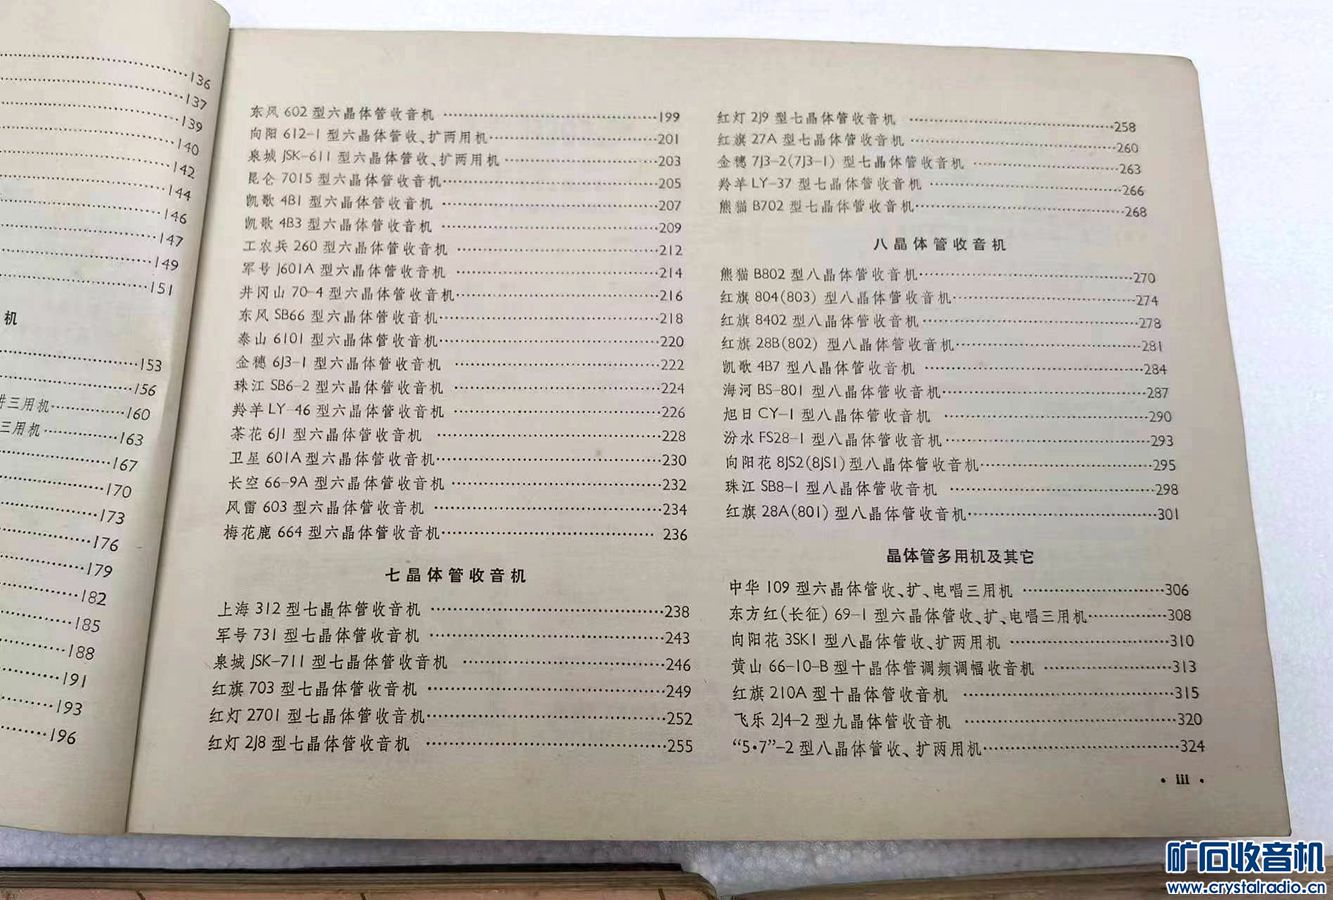 136
137
139
140
142
144
146
147
149
151
机
153
156
三用机 160
三用机 163
167
170
173
176
179
182
185
188
191
193
196
东风 602 型六晶体管收音机 199
向阳 612-1 型六晶体管收、扩两用机 201
泉城 JSK-611 型六晶体管收、扩两用机 203
昆仑 7015 型六晶体管收音机 205
凯歌 4B1 型六晶体管收音机 207
凯歌 4B3 型六晶体管收音机 209
工农兵 260 型六晶体管收音机 212
军号 J601A 型六晶体管收音机 214
井冈山 70-4 型六晶体管收音机 216
东风 SB66 型六晶体管收音机 218
泰山 6101 型六晶体管收音机 220
金穗 6J3-1 型六晶体管收音机 222
珠江 SB6-2 型六晶体管收音机 224
羚羊 LY-46 型六晶体管收音机 226
茶花 6J1 型六晶体管收音机 228
卫星 601A 型六晶体管收音机 230
长空 66-9A 型六晶体管收音机 232
风雷 603 型六晶体管收音机 234
梅花鹿 664 型六晶体管收音机 236
七晶体管收音机
上海 312 型七晶体管收音机 238
军号 731 型七晶体管收音机 243
泉城 JSK-711 型七晶体管收音机 246
红旗 703 型七晶体管收音机 249
红灯 2701 型七晶体管收音机 252
红灯 2J8 型七晶体管收音机 255
红灯 2J9 型七晶体管收音机 258
红旗 27A 型七晶体管收音机 260
金穗 7J3-2(7J3-1) 型七晶体管收音机 263
羚羊 LY-37 型七晶体管收音机 266
熊猫 B702 型七晶体管收音机 268
八晶体管收音机
熊猫 B802 型八晶体管收音机 270
红旗 804(803) 型八晶体管收音机 274
红旗 8402 型八晶体管收音机 278
红旗 28B(802) 型八晶体管收音机 281
凯歌 4B7 型八晶体管收音机 284
海河 BS-801 型八晶体管收音机 287
旭日 CY-1 型八晶体管收音机 290
汾水 FS28-1 型八晶体管收音机 293
向阳花 8JS2(8JS1) 型八晶体管收音机 295
珠江 SB8-1 型八晶体管收音机 298
红旗 28A(801) 型八晶体管收音机 301
晶体管多用机及其它
中华 109 型六晶体管收、扩、电唱三用机 306
东方红(长征) 69-1 型六晶体管收、扩、电唱三用机 308
向阳花 3SK1 型八晶体管收、扩两用机 310
黄山 66-10-B 型十晶体管调频调幅收音机 313
红旗 210A 型十晶体管收音机 315
飞乐 2J4-2 型九晶体管收音机 320
“5·7”-2 型八晶体管收、扩两用机 324
· iii ·
矿石收音机
www.crystalradio.cn